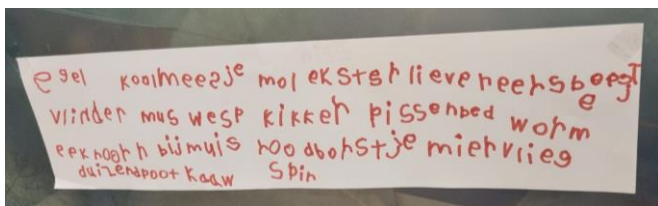 egel koolmeesje mol ekster lieveheersbeestje
vlinder mus wesp kikker pissenbed worm
eekhoorn bij muis roodborstje mier vlieg
duizendpoot kaaw spin